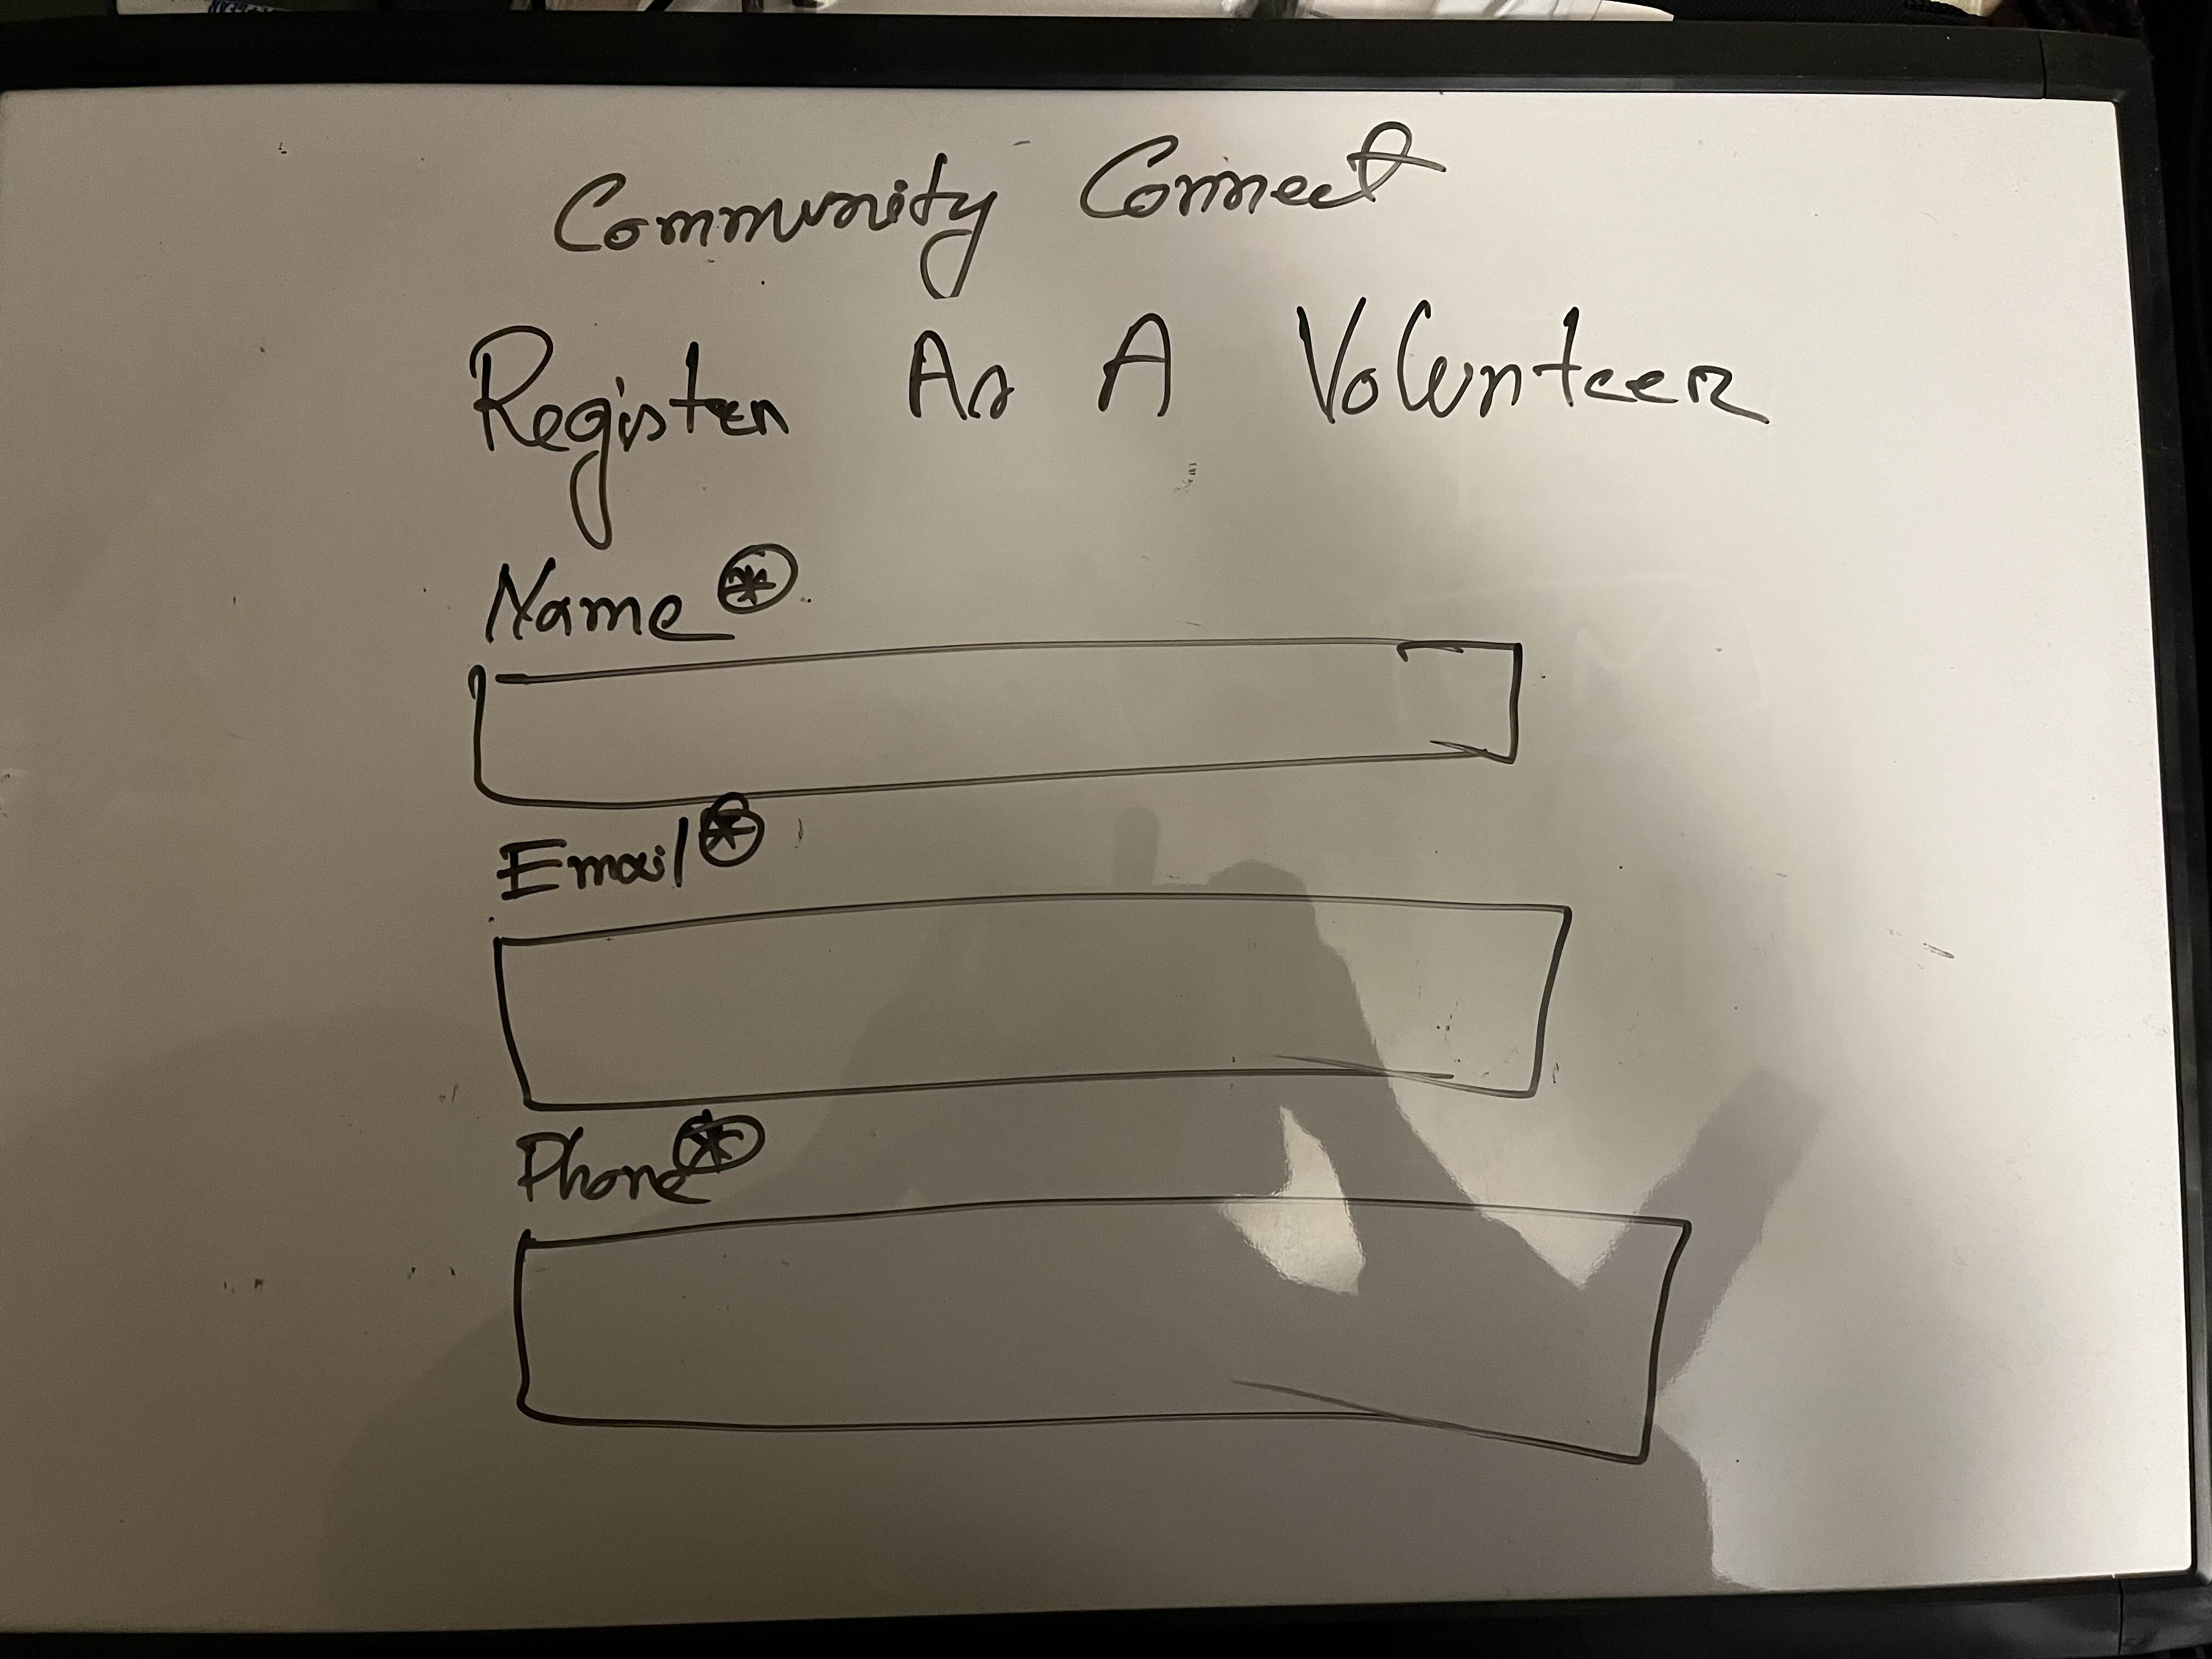 Community Connect
Register As A Volunteer
Name *
Email *
Phone *